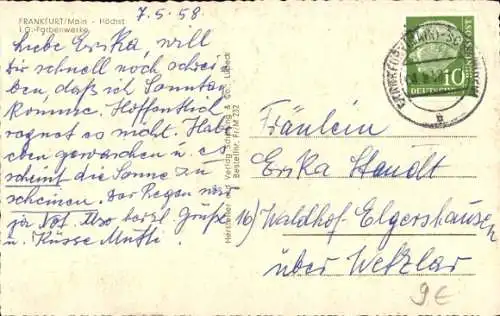 7.5.58
FRANKFURT/Main - Höchst
I.G.-Farbenwerke
Liebe Erika, will
Dir schnell noch schrei
ben, daß ich Sonntag
komme. Hoffentlich
regnet es nicht. Habe
eben gewaschen u. es
scheint die Sonne zu
scheinen. Der Regen war
ja Not. Also herzl. Grüße
u. Küsse Mutti.
Hersteller und Verlag Schöning & Co., Lübeck
Bestellnr. Fr/M 232
10
DEUTSCHE
Fräulein
Erika Staudt
16) Waldhof Elgershausen
über Wetzlar
9€